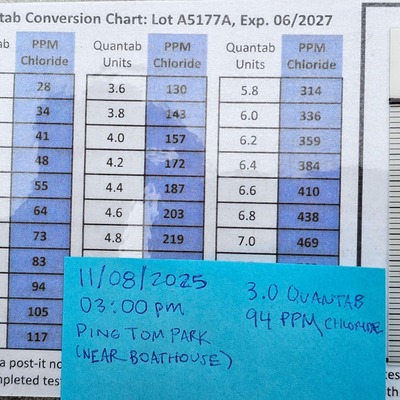 tab Conversion Chart: Lot A5177A, Exp. 06/2027
tab PPM Chloride Quantab Units PPM Chloride Quantab Units PPM Chloride
28 3.6 130 5.8 314
34 3.8 143 6.0 336
41 4.0 157 6.2 359
48 4.2 172 6.4 384
55 4.4 187 6.6 410
64 4.6 203 6.8 438
73 4.8 219 7.0 469
83
94
105
117
11/08/2025
03:00 pm
PING TOM PARK
(NEAR BOATHOUSE)
3.0 QUANTAB
94 PPM CHLORIDE
a post-it no
mpleted test